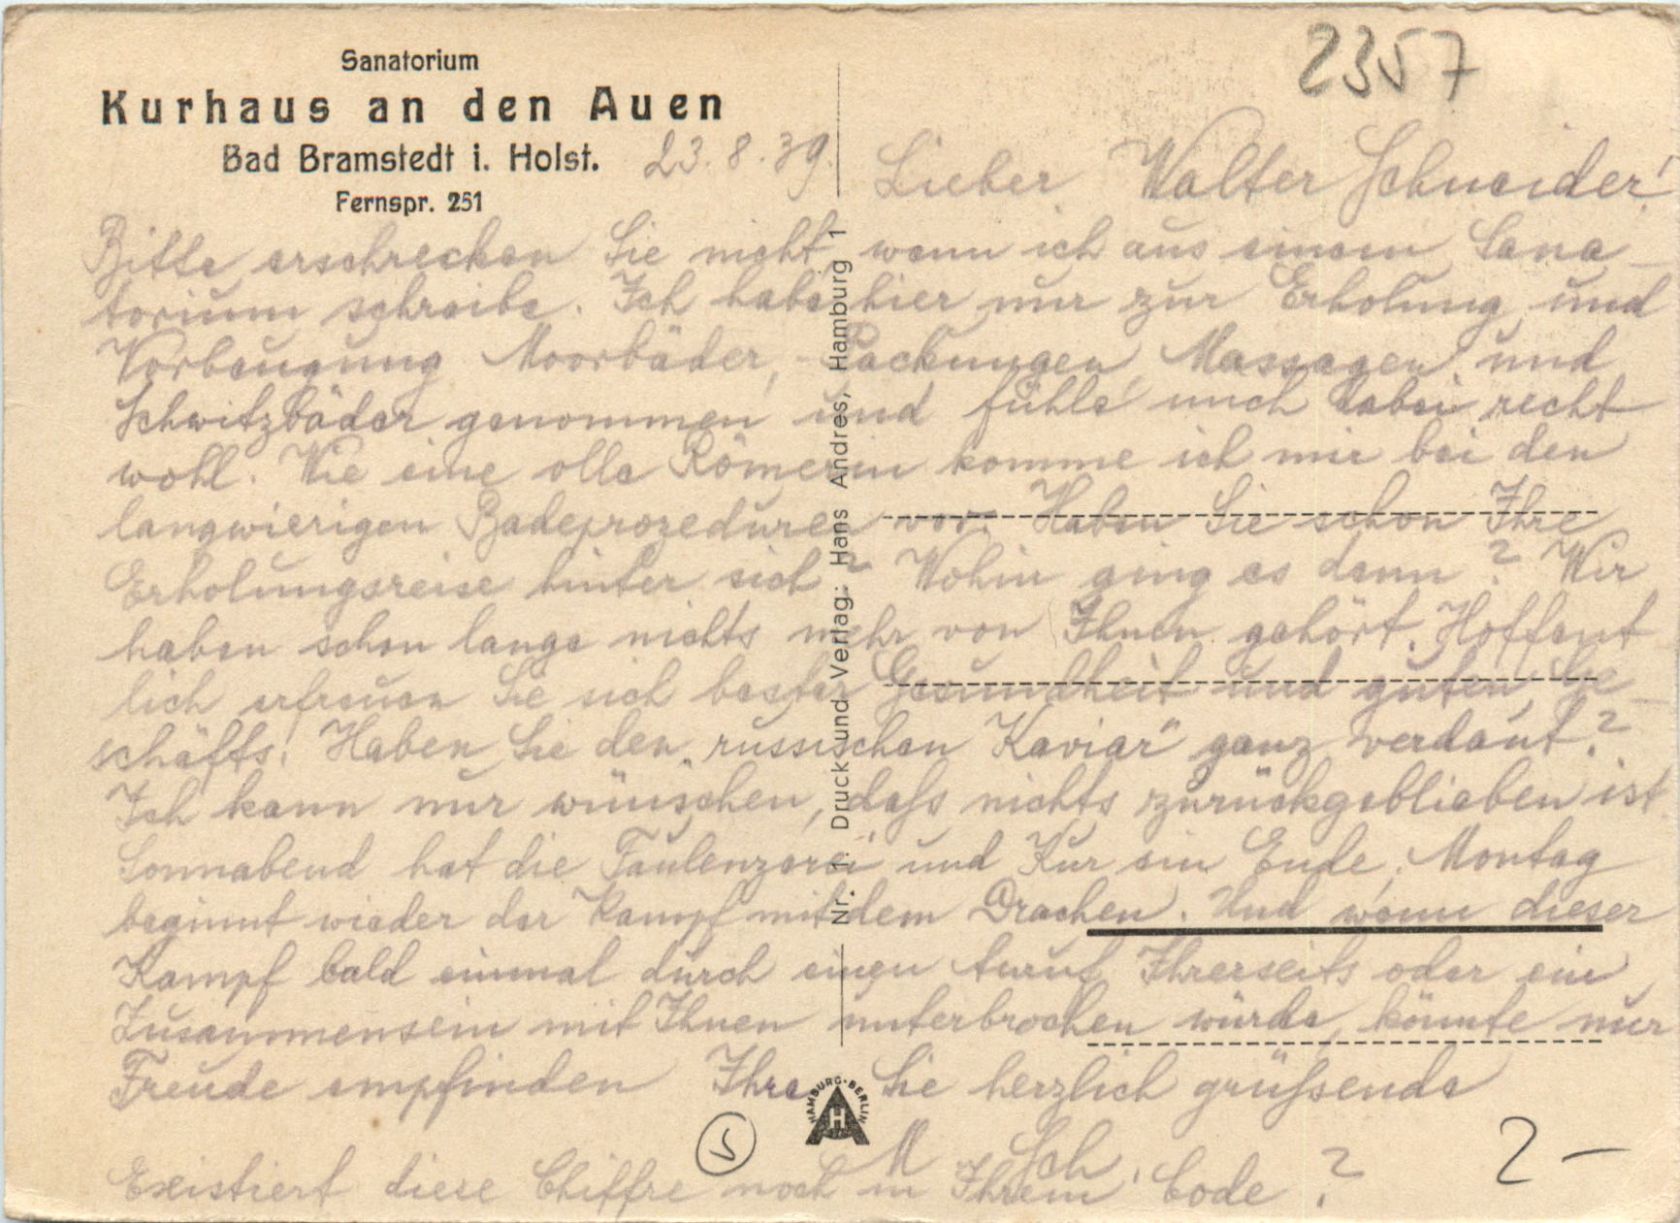 2357
Sanatorium
Kurhaus an den Auen
Bad Bramstedt i. Holst.
Fernspr. 251
23.8.39.
Lieber Walter Schneider!
Bitte erschrecken Sie nicht, wenn ich aus einem Sana-
torium schreibe. Ich habe hier nur zur Erholung und
Vorbeugung Moorbäder, -Packungen, Massagen und
Schwitzbäder genommen und fühle mich dabei recht
wohl. Wie eine olle Römerin komme ich mir bei den
langwierigen Badeprozeduren vor. Haben Sie schon Ihre
Erholungsreise hinter sich? Wohin ging es denn? Wir
haben schon lange nichts mehr von Ihnen gehört. Hoffent
lich erfreuen Sie sich bester Gesundheit und guten Ge-
schäfts! Haben Sie den „russischen Kaviar" ganz verdaut?
Ich kann nur wünschen, dass nichts zurückgeblieben ist.
Sonnabend hat die Faulenzerei und Kur ein Ende, Montag
beginnt wieder der Kampf mit dem Drachen. Und wenn dieser
Kampf bald einmal durch einen Anruf Ihrerseits oder ein
Zusammensein mit Ihnen unterbrochen würde, könnte nur
Freude empfinden Ihre Sie herzlich grüßende
M Sch.
Existiert diese Chiffre noch in Ihrem Code?
Nr. 1. Druck und Verlag: Hans Andres, Hamburg 1
HAMBURG-BERLIN
AH
5
2-